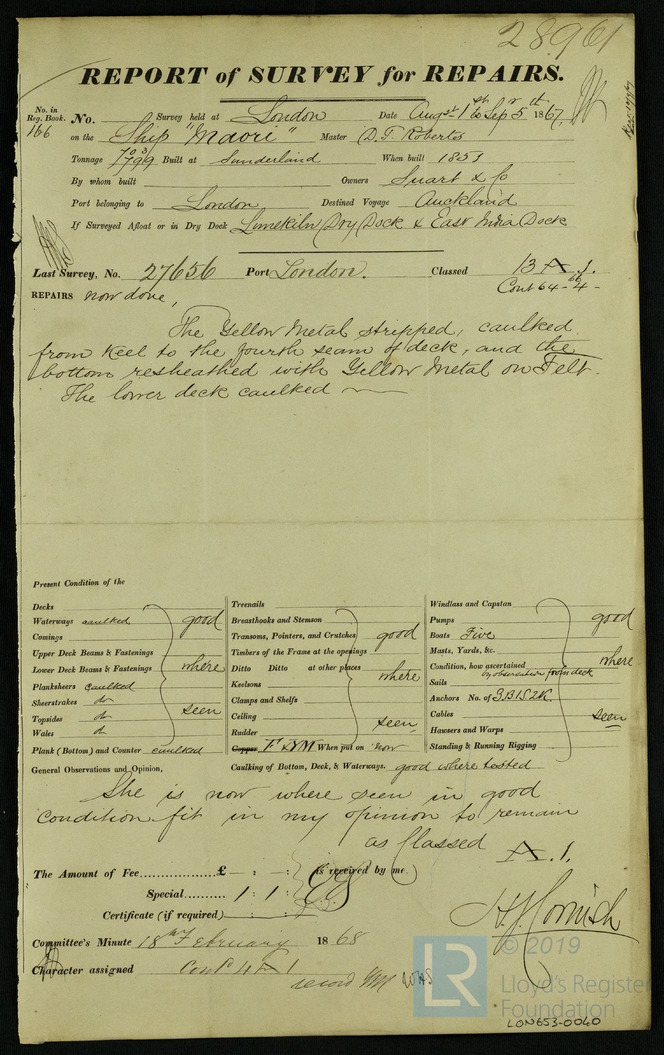 28961
REPORT of SURVEY for REPAIRS.
No. in Reg. Book. No. Survey held at London Date Augst 1st to Sepr 5th 1867.
166 on the Ship "Maori" Master D. T. Roberts
Tonnage 703/799 Built at Sunderland When built 1851
By whom built Owners Stuart & Co
Port belonging to London Destined Voyage Auckland
If Surveyed Afloat or in Dry Dock Limekiln Dry Dock & East India Dock
Last Survey, No. 27656 Port London. Classed 13 A.1.
Cont 64-4-
REPAIRS now done,
The Yellow Metal stripped, caulked
from Keel to the fourth seam of deck, and the
bottom resheathed with Yellow Metal on Felt.
The lower deck caulked
Present Condition of the
Decks
Waterways caulked good
Comings
Upper Deck Beams & Fastenings
Lower Deck Beams & Fastenings where
Planksheers caulked
Sheerstrakes do
Topsides do seen
Wales do
Plank (Bottom) and Counter caulked
Treenails
Breasthooks and Stemson
Transoms, Pointers, and Crutches good
Timbers of the Frame at the openings
Ditto Ditto at other places where
Keelsons
Clamps and Shelfs
Ceiling
Rudder seen
Copper F & YM When put on now
Caulking of Bottom, Deck, & Waterways. good where tested
Windlass and Capstan
Pumps good
Boats Five
Masts, Yards, &c.
Condition, how ascertained where
by observation from deck
Sails
Anchors No. of 3B 1S 2K.
Cables seen
Hawsers and Warps
Standing & Running Rigging
General Observations and Opinion,
She is now where seen in good
condition fit in my opinion to remain
as Classed A.1.
The Amount of Fee £ - : - : is received by me,
Special 1 : 1 :
Certificate (if required)
H J Cornish
Committee's Minute 18th February 1868
Character assigned Contd 4 A 1
LR
© 2019
Lloyd's Register
Foundation
LON653-0040